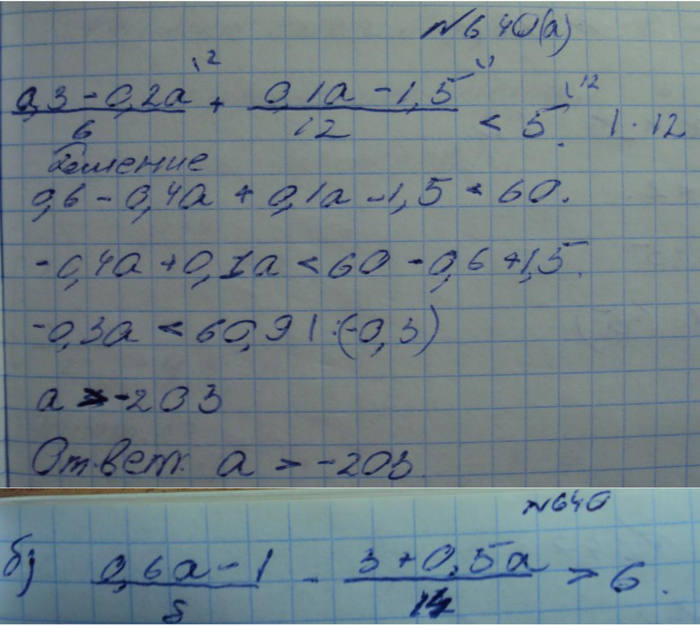 №640(а)
0,3-0,2а/6 \2 + 0,1а-1,5/12 \1 < 5 \12 |·12
Решение
0,6-0,4а+0,1а-1,5<60.
-0,4а+0,1а<60-0,6+1,5.
-0,3а<60,9 |:(-0,3)
а>-203
Ответ: а>-203.
№640
б) 0,6а-1/5 - 3+0,5а/14 > 6.